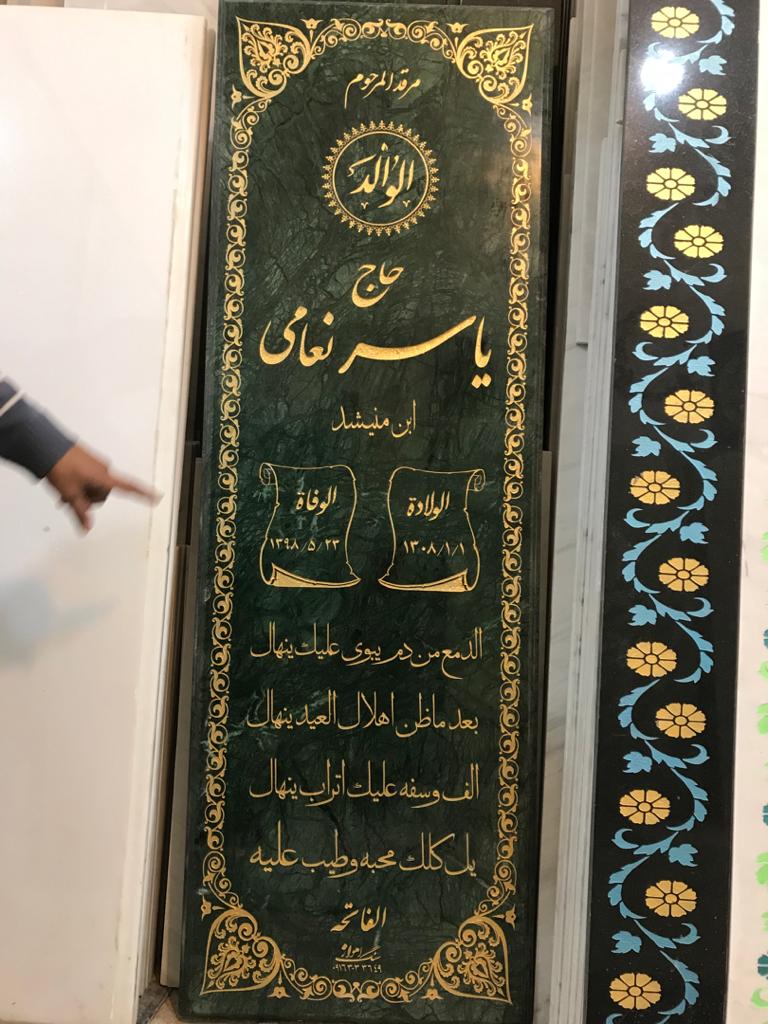 مرقد المرحوم
الوالد
حاج
ياسر نعامی
ابن منيشد
الولادة
۱۳۰۸/۱/۱
الوفاة
۱۳۹۸/۵/۲۳
الدمع من دم يبوی عليك ينهال
بعد ماظن اهلال العيد ينهال
الف وسفه عليك اتراب ينهال
يل كلك محبه وطيب عليه
الفاتحة